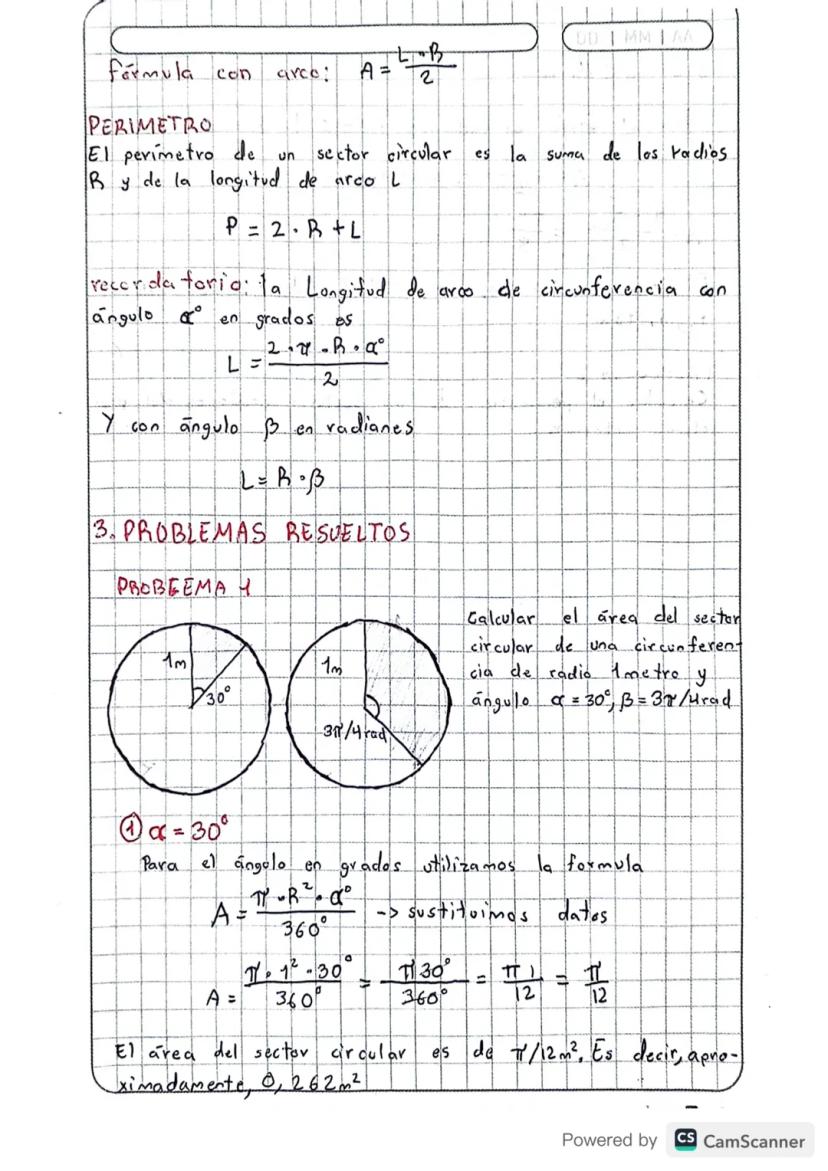 DD | MM | AA
fórmula con arco: A = L · R / 2
PERIMETRO
El perímetro de un sector circular es la suma de los radios
R y de la longitud de arco L
P = 2 · R + L
recordatorio: la Longitud de arco de circunferencia con
ángulo α° en grados es
L = 2 · π · R · α° / 2
Y con ángulo β en radianes
L = R · β
3. PROBLEMAS RESUELTOS
PROBLEMA 1
1m
30°
1m
3π/4 rad
Calcular el área del sector
circular de una circunferen-
cia de radio 1 metro y
ángulo α = 30°, β = 3π/4 rad
① α = 30°
Para el ángulo en grados utilizamos la formula
A = π · R² · α° / 360° -> sustituimos datos
A = π · 1² · 30° / 360° = π 30° / 360° = π 1 / 12 = π / 12
El área del sector circular es de π/12m². Es decir, apro-
ximadamente, 0,262m²
Powered by CS CamScanner